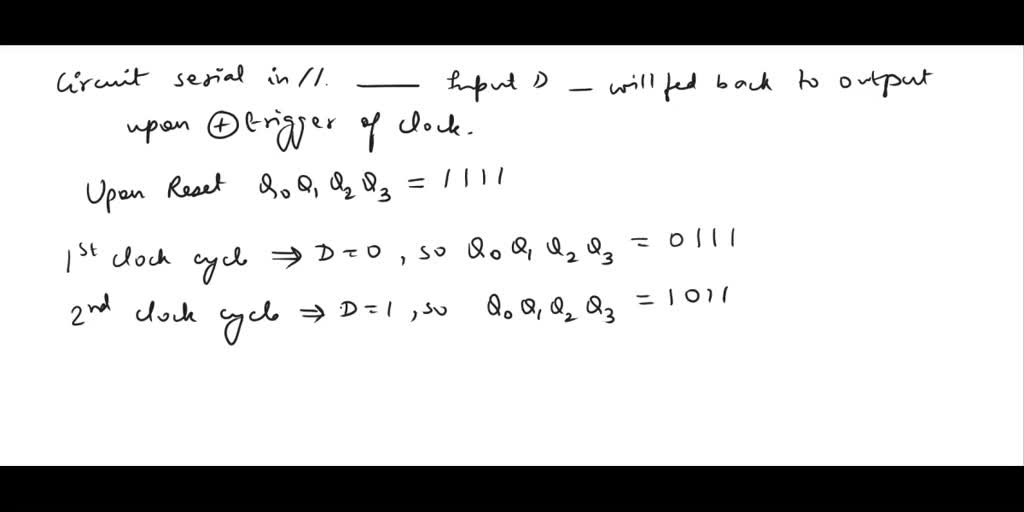 Circuit serial in //. — Input D — will fed back to output
upon ⊕ trigger of clock.
Upon Reset Q₀ Q₁ Q₂ Q₃ = 1111
1st clock cycle ⇒ D = 0, so Q₀ Q₁ Q₂ Q₃ = 0111
2nd clock cycle ⇒ D = 1, so Q₀ Q₁ Q₂ Q₃ = 1011